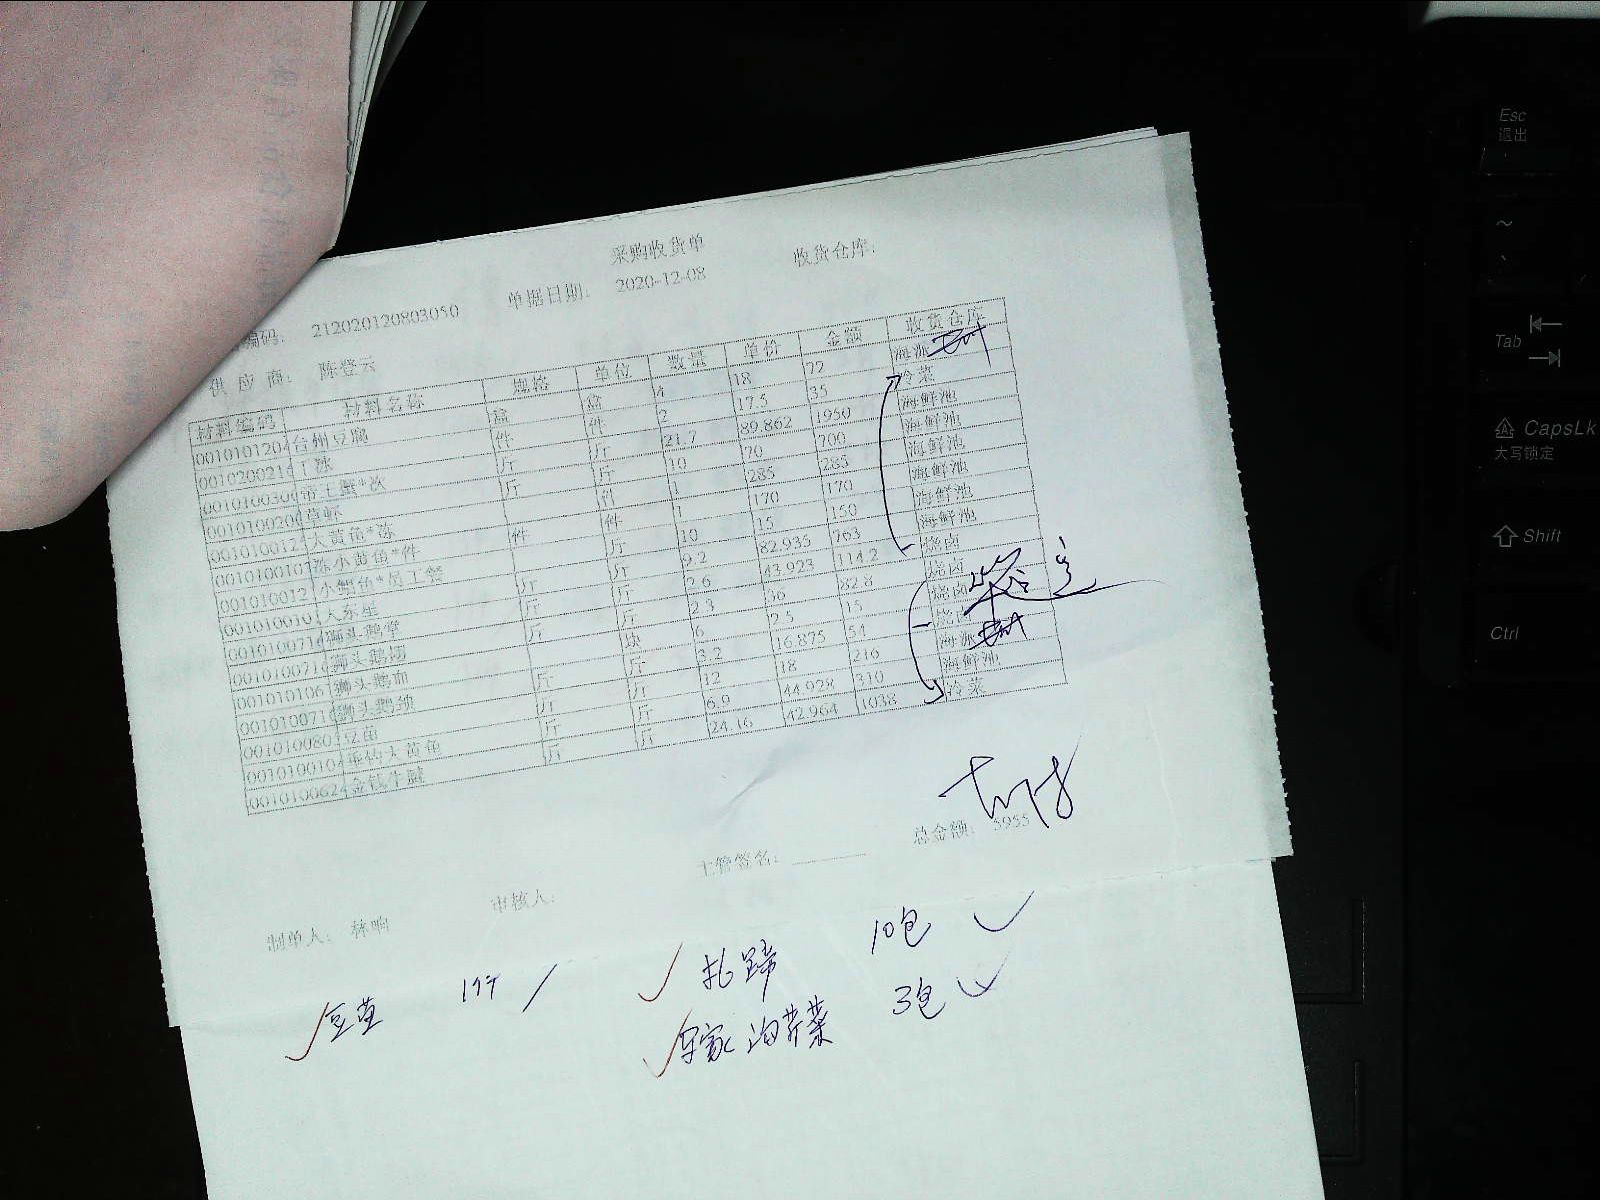 采购收货单
编码: 212020120803050 单据日期: 2020-12-08 收货仓库:
供应商: 陈登云
材料编码 材料名称 规格 单位 数量 单价 金额 收货仓库
0010101204 台州豆腐 盒 盒 4 18 72 海派
001020021 件 件 2 17.5 35 冷菜
0010100300 帝王蟹 斤 斤 21.7 89.862 1950 海鲜池
0010100200 草虾 斤 斤 10 70 700 海鲜池
001010012 大黄鱼*冻 件 1 285 285 海鲜池
001010010 冻小黄鱼*件 件 件 1 170 170 海鲜池
001010012 小鲳鱼*员工餐 斤 10 15 150 海鲜池
001010010 大东星 斤 斤 9.2 82.935 763 海鲜池
001010071 狮头鹅掌 斤 斤 2.6 43.923 114.2 烧卤
001010071 狮头鹅翅 斤 斤 2.3 36 82.8 烧卤
001010106 狮头鹅血 块 6 2.5 15 烧卤
001010071 狮头鹅颈 斤 斤 3.2 16.875 54 烧卤
001010080 豆苗 斤 斤 12 18 216 海派
001010010 垂钓大黄鱼 斤 斤 6.9 44.928 310 海鲜池
001010062 金钱牛腱 斤 斤 24.16 42.964 1038 冷菜
总金额: 5955
制单人: 林响 审核人: 主管签名:
豆苗 1件 扎蹄 10包
3包
Esc
退出
~
Tab
CapsLk
大写锁定
Shift
Ctrl